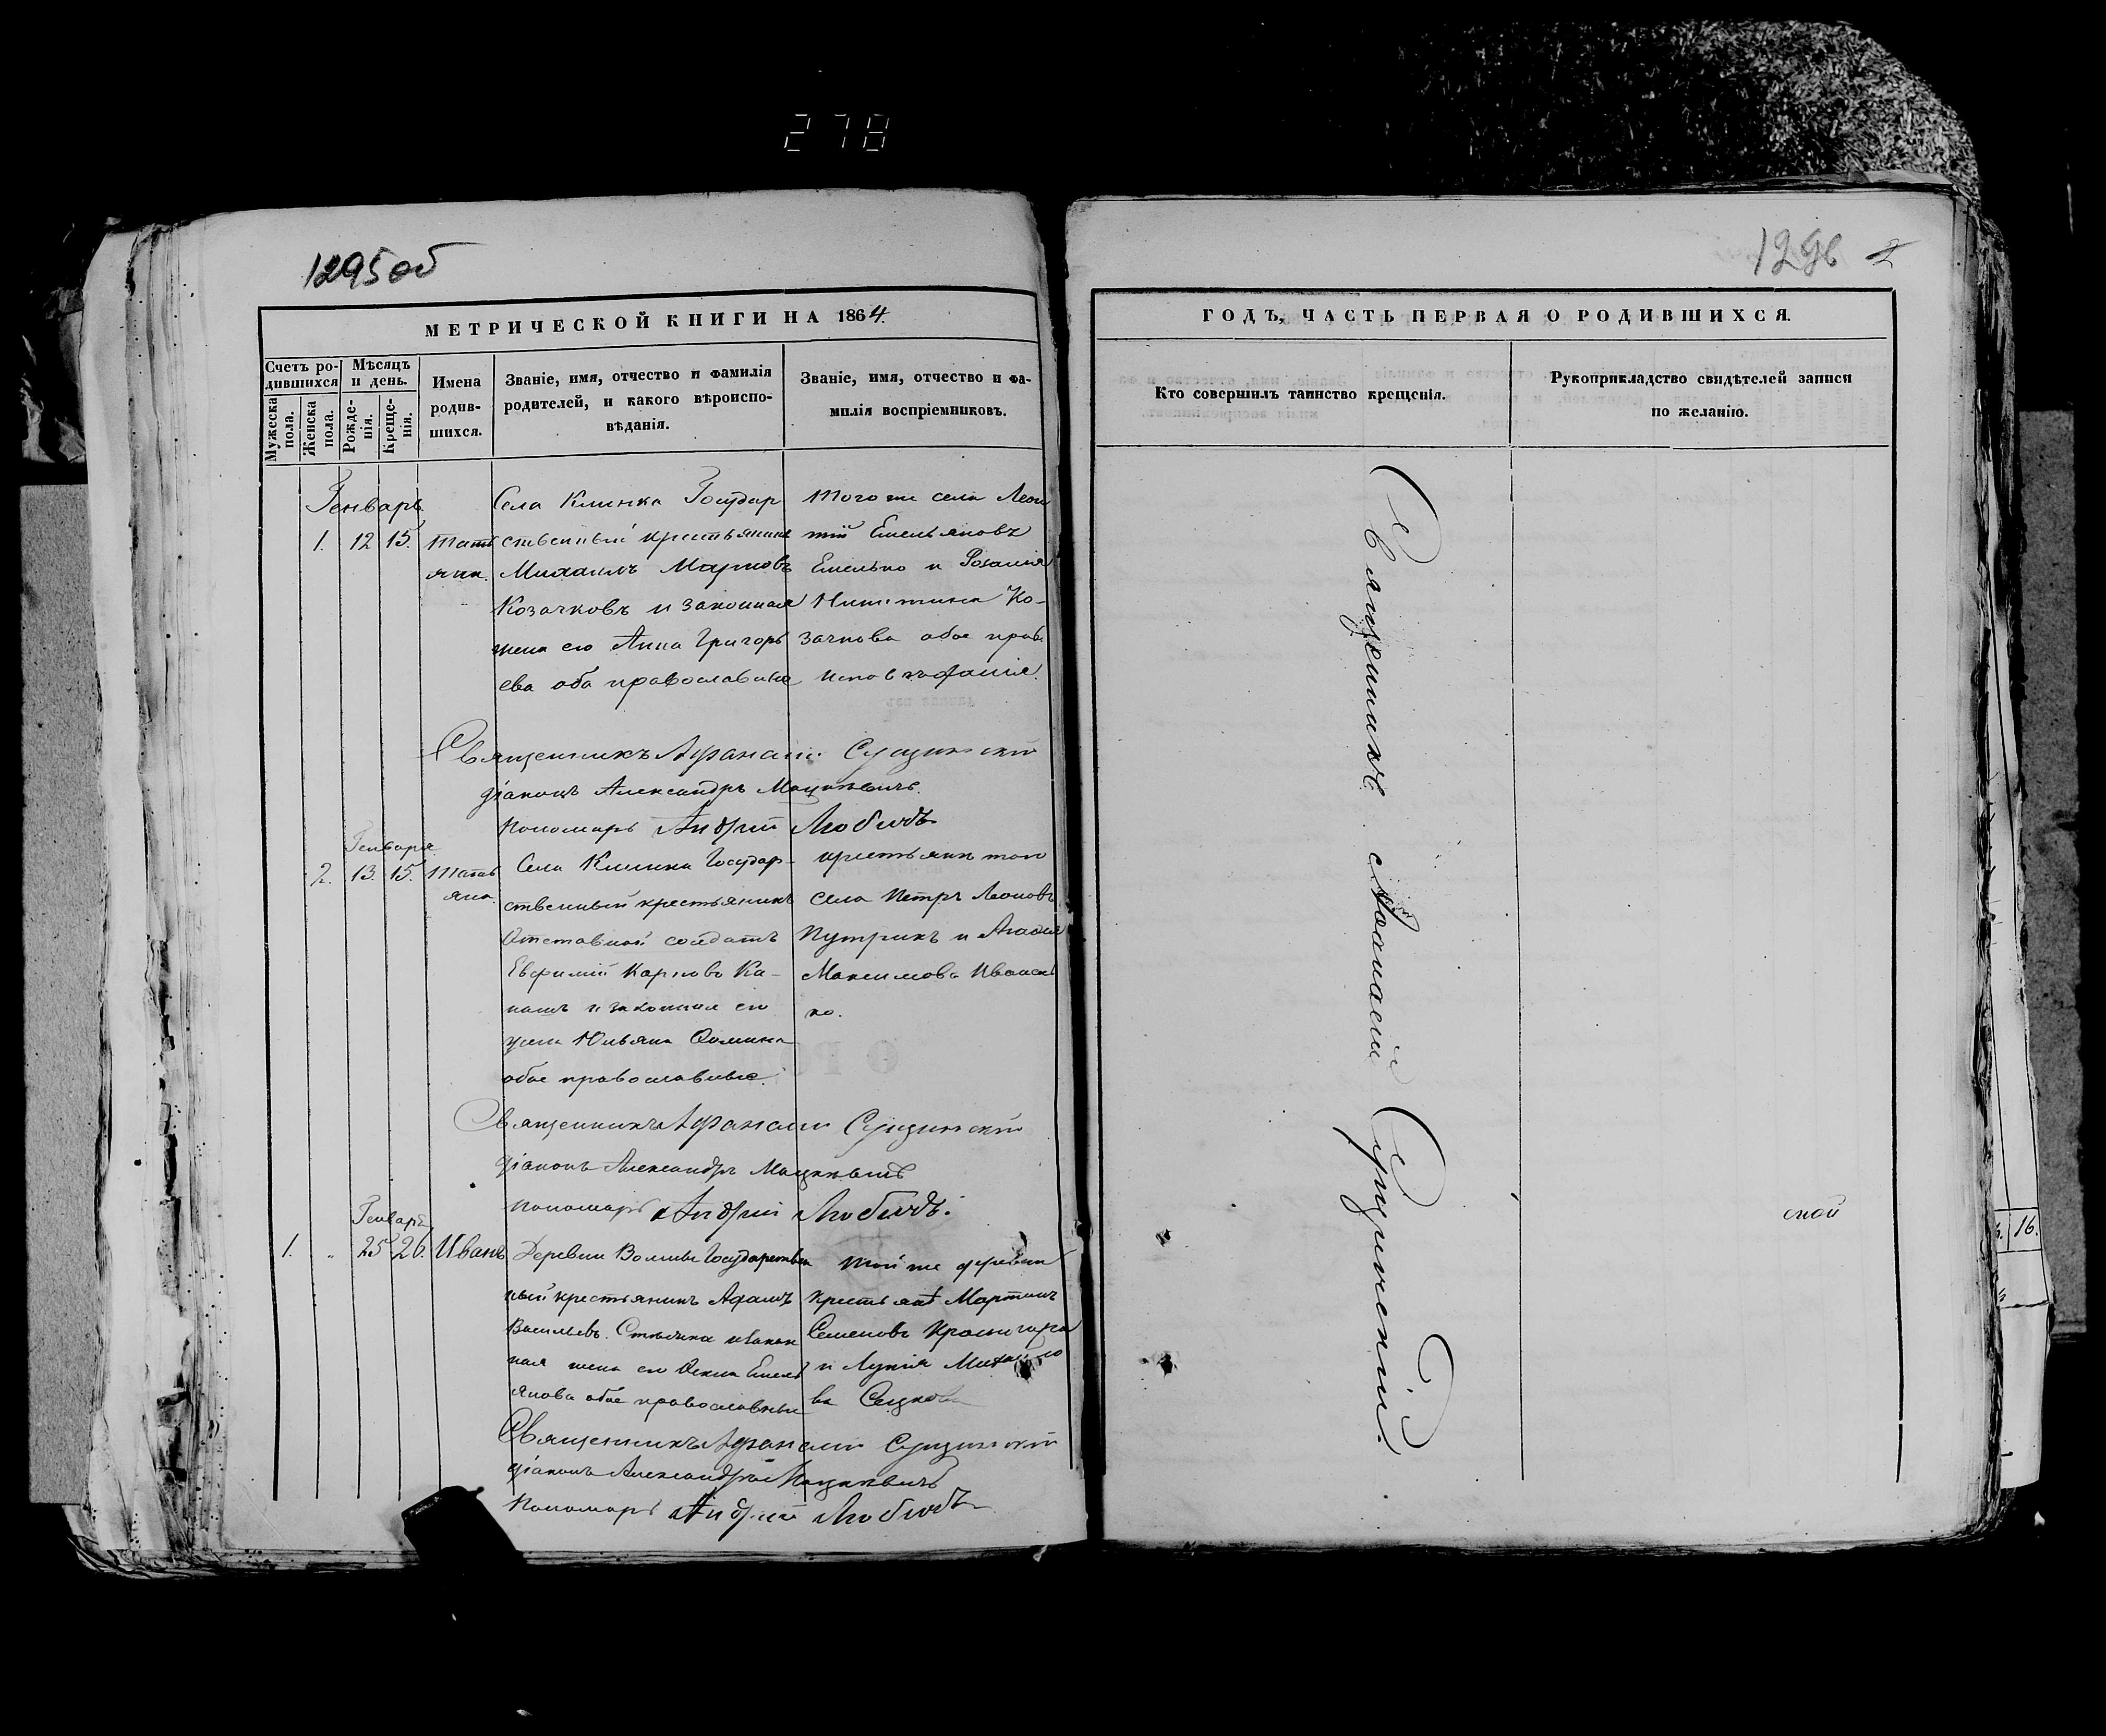 278
1295 об
МЕТРИЧЕСКОЙ КНИГИ НА 1864
Счетъ родившихся
Мужеска пола.
Женска пола.
Мѣсяцъ и день.
Рожденія.
Крещенія.
Имена родившихся.
Званіе, имя, отчество и фамилія родителей, и какого вѣроисповѣданія.
Званіе, имя, отчество и фамилія воспріемниковъ.
Генварь
1. 12 15. Татьяна.
Села Клинка Государ
ственный крестьянинъ
Михаилъ Марковъ
Козачковъ и законная
жена его Анна Григорь
ева оба православные
Того же села Леон
тій Емельяновъ
Емелько и
Никитина Ко-
зачкова обое прав.
исповѣданія.
Священникъ Афанасій Сущинскій
діаконъ Александръ Мацкевичъ.
Пономарь Андрій
Генваря
2. 13. 15. Татьяна.
Села Клинка Государ-
ственный крестьянинъ
Отставной солдатъ
Евфимій Карповъ Ка-
нашъ и законная его
жена Юльяна Ѳомина
обое православные.
крестьянинъ того
села Петръ Леоновъ
Путрикъ и
Максимова
ко.
Священникъ Афанасій Сущинскій
діаконъ Александръ Мацкевичъ
Пономарь Андрій
Генварь
1. „ 25 26. Иванъ
Деревни Государствен
ный крестьянинъ Адамъ
Васильевъ и закон
ная жена его Емель
янова обое православные
Той же деревни
крестьян. Мартинъ
Семеновъ
и Лукія Михайло
ва
Священникъ Афанасій Сущинскій
діаконъ Александръ Мацкевичъ
Пономарь Андрій
1296 2
ГОДЪ, ЧАСТЬ ПЕРВАЯ О РОДИВШИХСЯ.
Кто совершилъ таинство крещенія.
Рукоприкладство свидѣтелей записи по желанію.
Священникъ Афанасій Сущинскій.
ской
16.